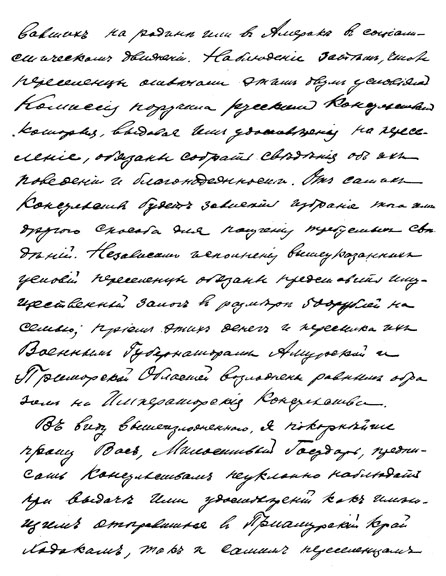 вавшихъ на родинѣ или въ Америкѣ въ соціали-
стическомъ движеніи. Наблюденіе затѣмъ, чтобы
переселенцы отвѣчали этимъ двумъ условіямъ
Комиссія поручила русскимъ Консульствамъ
которыя, выдавая имъ удостовѣренія на пересе-
леніе, обязаны собрать свѣдѣнія объ ихъ
поведеніи и благонадежности. Отъ самихъ
Консульствъ будетъ зависѣть избраніе того или
другого способа для полученія требуемыхъ свѣ-
дѣній. Независимо исполненія вышеуказанныхъ
условій переселенцы обязаны представить иму-
щественный залогъ въ размѣрѣ 600 рублей на
семью; пріемъ этихъ денегъ и пересылка ихъ
Военнымъ Губернаторамъ Амурской и
Приморской Областей возложены равнымъ обра-
зомъ на Императорскія Консульства.
Въ виду вышеизложеннаго, я покорнѣйше
прошу Васъ, Милостивый Государь, предпи-
сать Консульствамъ неуклонно наблюдать
при выдачѣ ими удостовѣреній какъ имѣю-
щимъ отправиться въ Пріамурскій край
ходокамъ, такъ и самимъ переселенцамъ